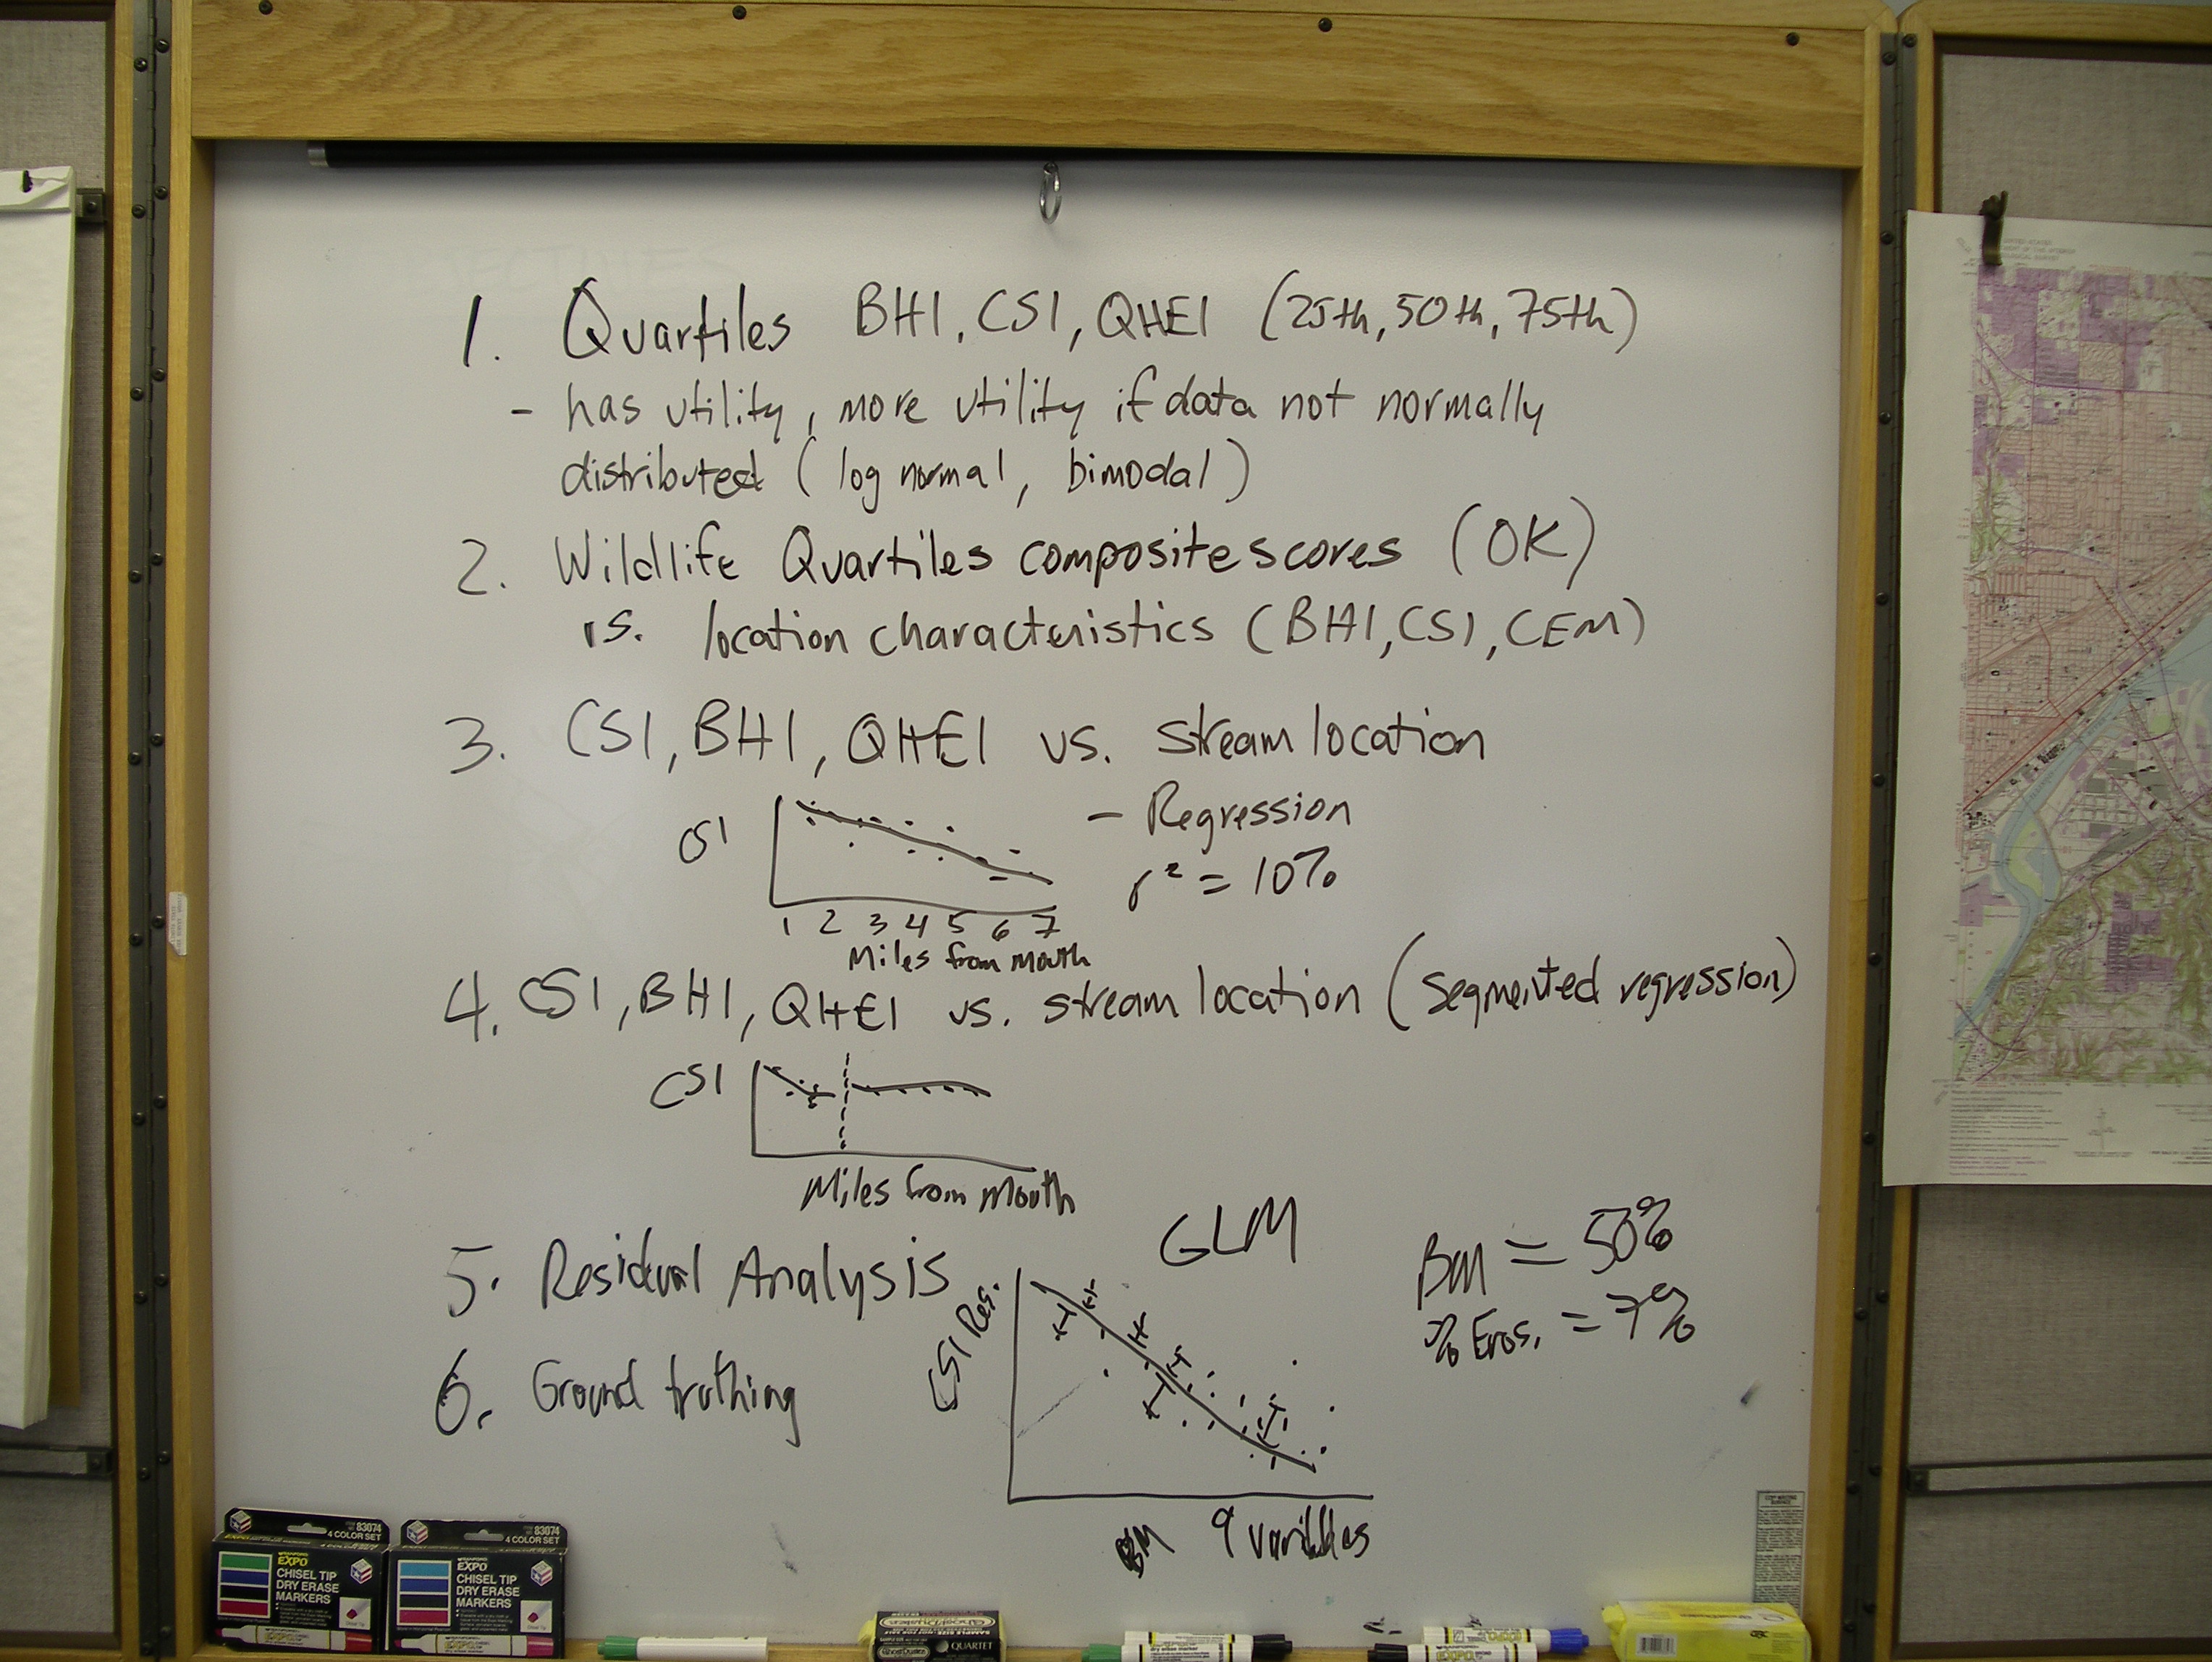 1. Quartiles BHI, CSI, QHEI (25th, 50th, 75th)
- has utility, more utility if data not normally
distributed (log normal, bimodal)
2. Wildlife Quartiles composite scores (OK)
vs. location characteristics (BHI, CSI, CEM)
3. CSI, BHI, QHEI vs. stream location
CSI
- Regression
r² = 10%
1 2 3 4 5 6 7
Miles from mouth
4. CSI, BHI, QHEI vs. stream location (segmented regression)
CSI
Miles from mouth
GLM
BM = 50%
% Eros. = 7%
5. Residual Analysis
CSI Res.
6. Ground truthing
BM 9 variables
83074
4 COLOR SET
EXPO
CHISEL TIP
DRY ERASE
MARKERS
83074
4 COLOR SET
EXPO
CHISEL TIP
DRY ERASE
MARKERS
QUARTET
EXPO